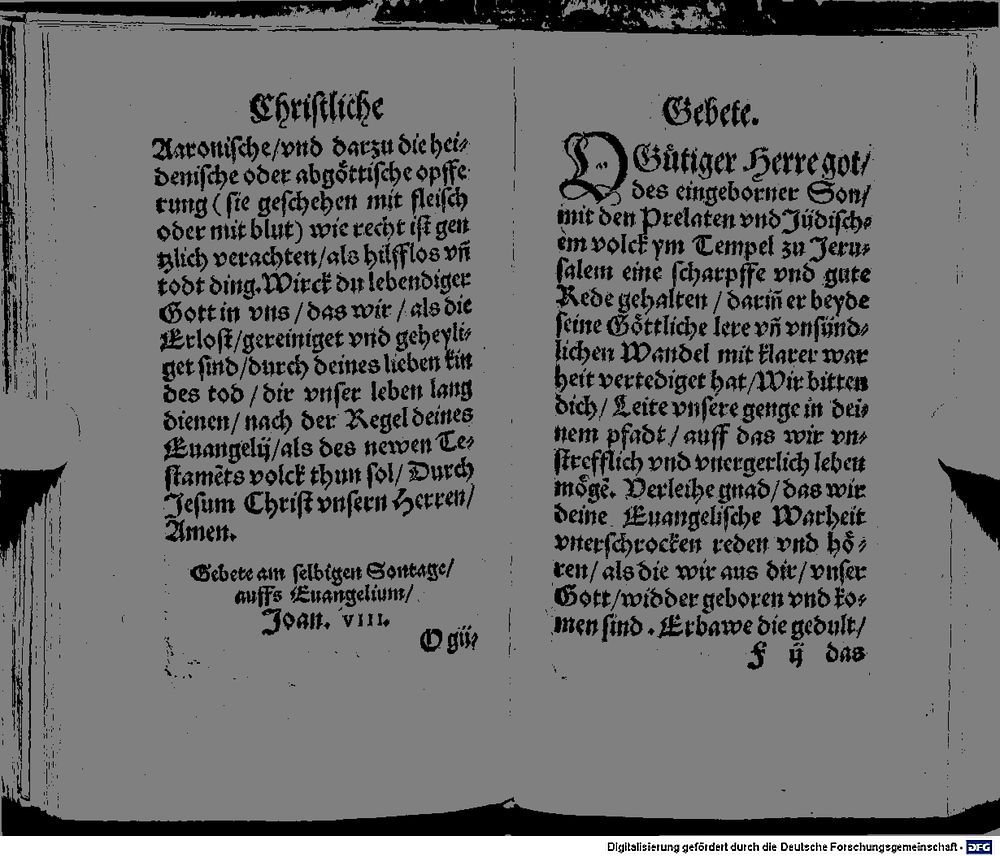 Christliche
Aaronische/vnd darzu die hei⸗
denische oder abgöttische opffe
rung (sie geschehen mit fleisch
oder mit blut) wie recht ist gen
tzlich verachten/als hilfflos vn̄
todt ding. Wirck du lebendiger
Gott in vns/das wir/als die
Erlost/gereiniget vnd geheyli⸗
get sind/durch deines lieben kin
des tod/dir vnser leben lang
dienen/nach der Regel deines
Euangelij/als des newen Te⸗
stamēts volck thun sol/Durch
Jesum Christ vnsern Herren/
Amen.
Gebete am selbigen Sontage/
auffs Euangelium/
Joan. VIII.
O gü⸗
Gebete.
O Gütiger Herre got/
des eingeborner Son/
mit den Prelaten vnd Jüdisch⸗
em volck ym Tempel zu Jeru⸗
salem eine scharpffe vnd gute
Rede gehalten/darin̄ er beyde
seine Göttliche lere vn̄ vnsünd⸗
lichen Wandel mit klarer war
heit vertediget hat/Wir bitten
dich/Leite vnsere genge in dei⸗
nem pfadt/auff das wir vn⸗
strefflich vnd vnergerlich leben
mögē. Verleihe gnad/das wir
deine Euangelische Warheit
vnerschrocken reden vnd hö⸗
ren/als die wir aus dir/vnser
Gott/widder geboren vnd ko⸗
men sind. Erbawe die gedult/
F ij das
Digitalisierung gefördert durch die Deutsche Forschungsgemeinschaft - DFG